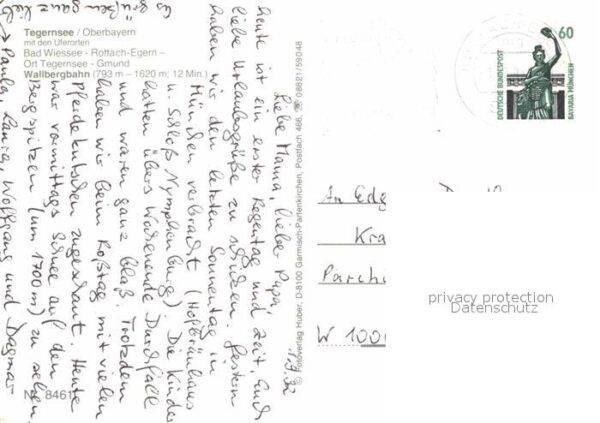 Tegernsee / Oberbayern
mit den Uferorten
Bad Wiessee - Rottach-Egern -
Ort Tegernsee - Gmund
Wallbergbahn (793 m – 1620 m; 12 Min.)
Nr. 8461
© Fotoverlag Huber, D-8100 Garmisch-Partenkirchen, Postfach 466, ☎ 08821/59048
Liebe Mama, lieber Papa,
heute ist ein erster Regentag und Zeit, Euch
liebe Urlaubsgrüße zu schicken. Gestern
haben wir den letzten Sonnentag in
München verbracht (Hofbräuhaus
u. Schloß Nymphenburg). Die Kinder
hatten übers Wochenende Durchfall
und waren ganz blaß. Trotzdem
haben wir beim Roßtag mit vielen
Pferdekutschen zugeschaut. Heute
war vormittags Schnee auf den
Bergspitzen (um 1700 m) zu sehen.
Es grüßen ganz lieb
Paula, Laura, Wolfgang und Dagmar
60
DEUTSCHE BUNDESPOST
BAVARIA MÜNCHEN
An Edg
Kra
Parch
W 1000
privacy protection
Datenschutz